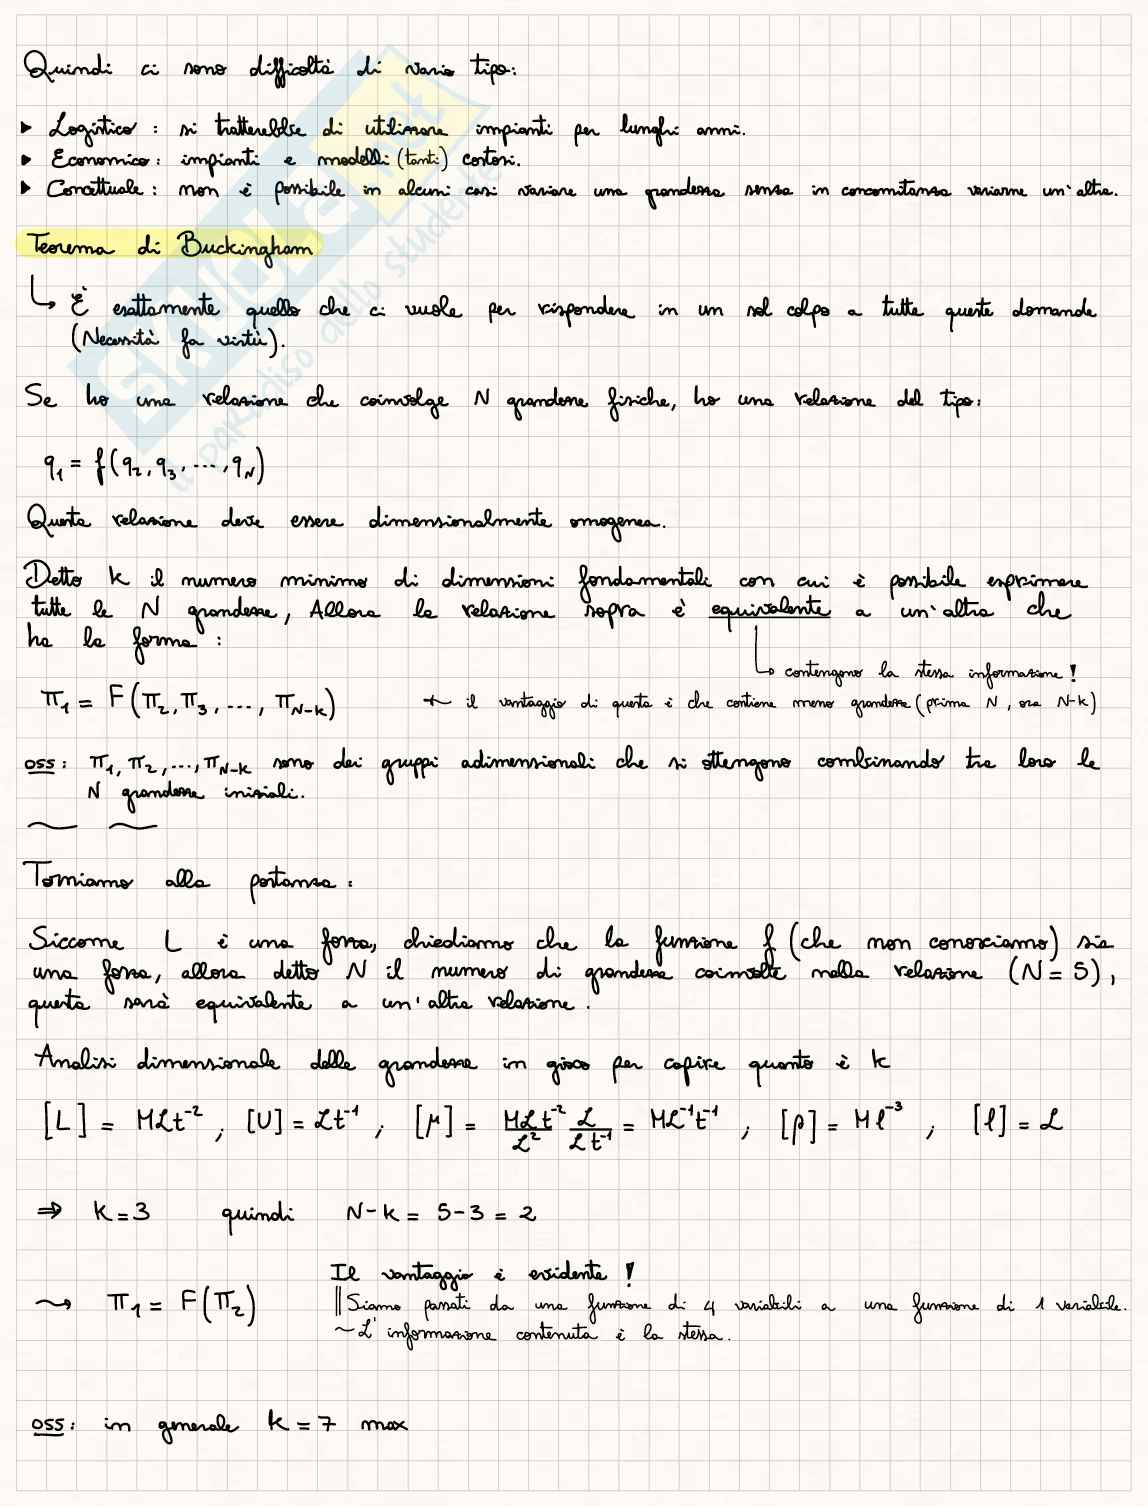 Quindi ci sono difficoltà di vario tipo:
▶ Logistico : si tratterebbe di utilizzare impianti per lunghi anni.
▶ Economico : impianti e modelli (tanti) costosi.
▶ Concettuale : non è possibile in alcuni casi variare una grandezza senza in concomitanza variarne un'altra.
Teorema di Buckingham
↳ È esattamente quello che ci vuole per rispondere in un sol colpo a tutte queste domande
(Necessità fa virtù).
Se ho una relazione che coinvolge N grandezze fisiche, ho una relazione del tipo:
q₁ = f(q₂, q₃, ..., q_N)
Questa relazione deve essere dimensionalmente omogenea.
Detto K il numero minimo di dimensioni fondamentali con cui è possibile esprimere
tutte le N grandezze, Allora la relazione sopra è equivalente a un'altra che
ha la forma :
↳ contengono la stessa informazione !
π₁ = F(π₂, π₃, ..., π_N-K) ← il vantaggio di questa è che contiene meno grandezze (prima N, ora N-K)
oss : π₁, π₂, ..., π_N-K sono dei gruppi adimensionali che si ottengono combinando tra loro le
N grandezze iniziali.
Torniamo alla portanza :
Siccome L è una forza, chiediamo che la funzione f (che non conosciamo) sia
una forza, allora detto N il numero di grandezze coinvolte nella relazione (N = 5),
questa sarà equivalente a un'altra relazione .
Analisi dimensionale delle grandezze in gioco per capire quanto è K
[L] = MLt⁻² ; [U] = Lt⁻¹ ; [μ] = MLt⁻²/L² L/Lt⁻¹ = ML⁻¹t⁻¹ ; [ρ] = Mℓ⁻³ ; [ℓ] = L
⇒ K = 3 quindi N-K = 5-3 = 2
Il vantaggio è evidente !
⇝ π₁ = F(π₂) ‖ Siamo passati da una funzione di 4 variabili a una funzione di 1 variabile.
~ L'informazione contenuta è la stessa.
oss : in generale K = 7 max